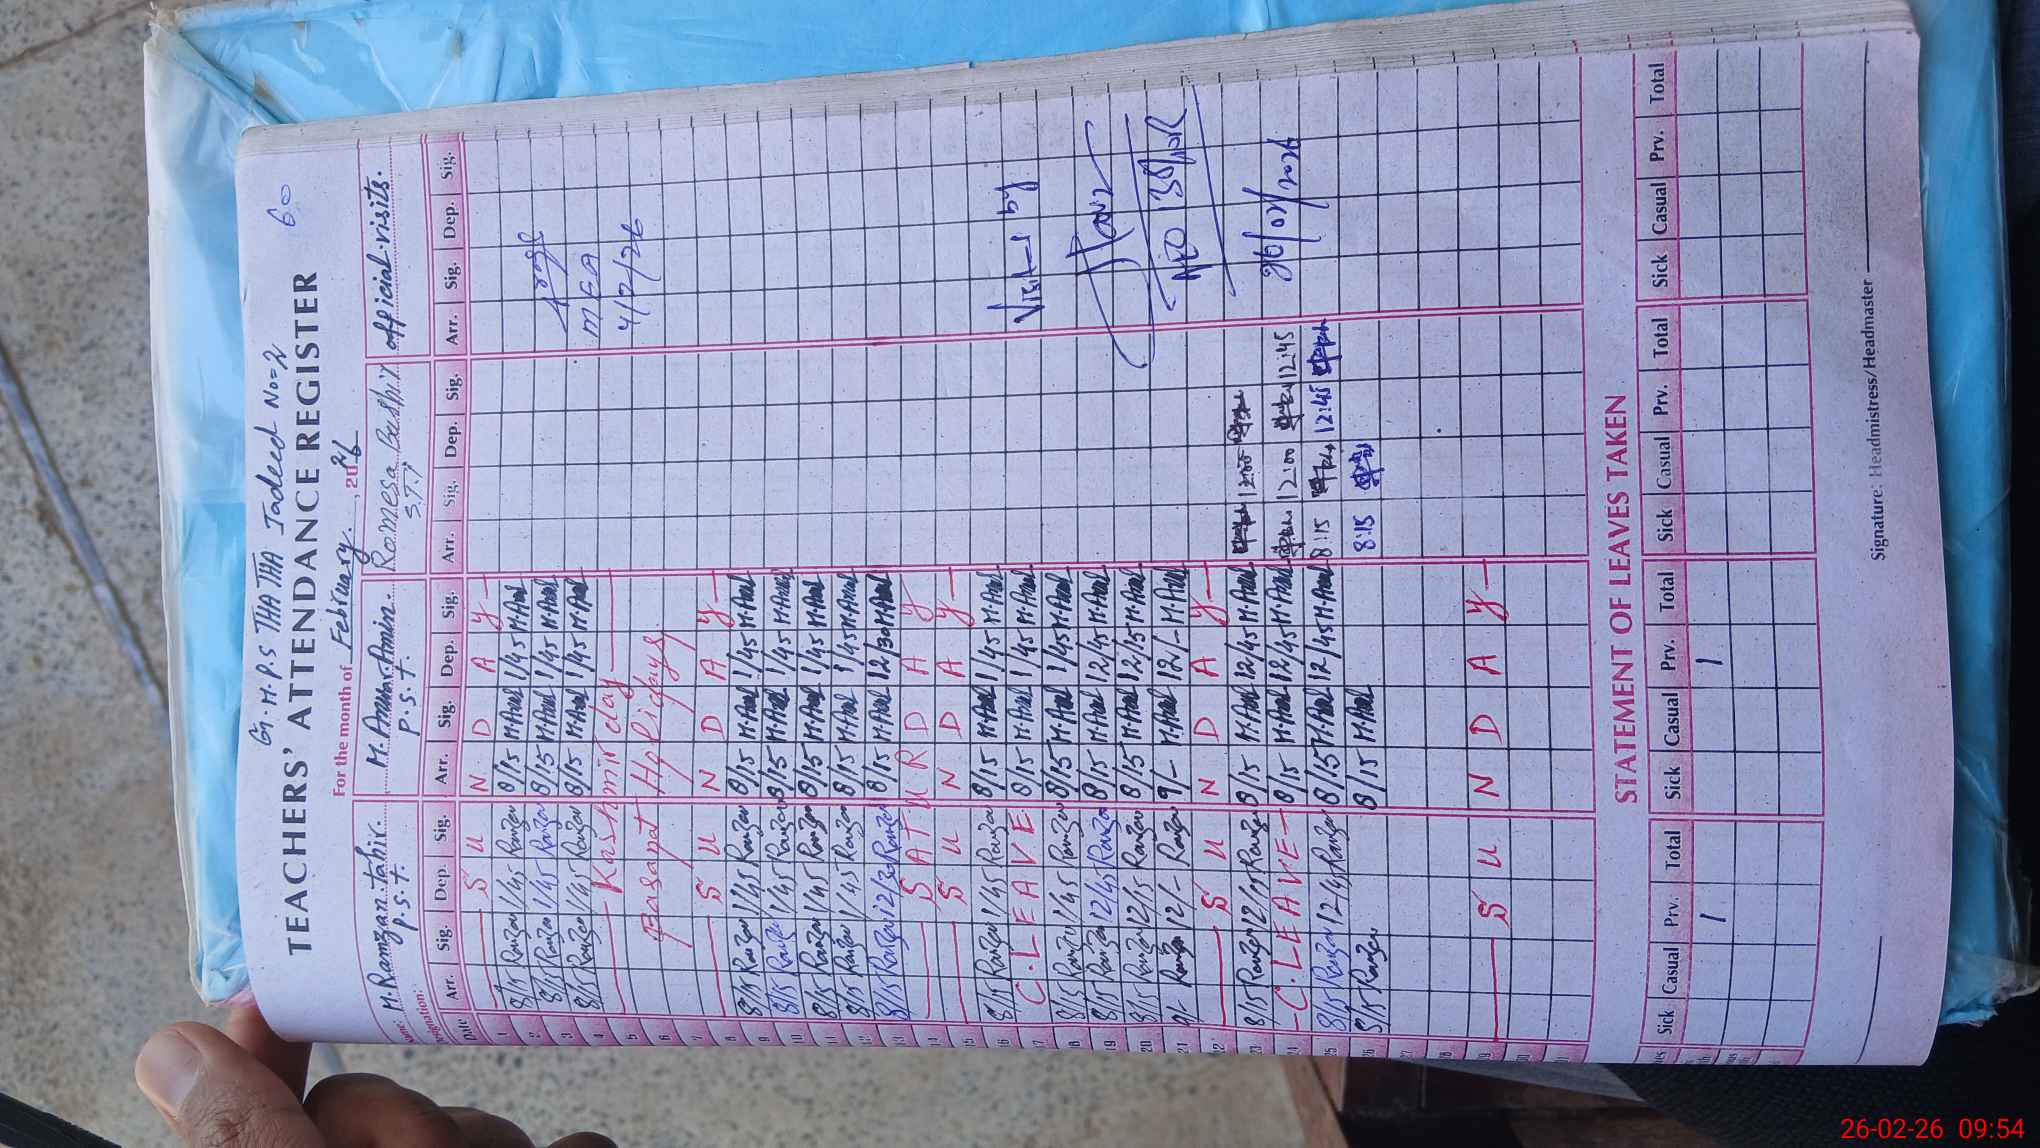 G.M.P.S THATHA Jadeed No=2
60
TEACHERS' ATTENDANCE REGISTER
For the month of February, 2026
M.Ramzan Tahir. M.Amin. Romesa Bashir official visits.
Designation: P.S.T. P.S.T. S.T.I
DATE Arr. Sig. Dep. Sig. Arr. Sig. Dep. Sig. Arr. Sig. Dep. Sig. Arr. Sig. Dep. Sig.
1 S U N D A Y
2 8/15 Ramzan 1/45 Ramzan 8/15 1/45
3 8/15 Ramzan 1/45 Ramzan 8/15 1/45
4 8/15 Ramzan 1/45 Ramzan 8/15 1/45 MEA 4/2/26
5 Kashmir day
6 Basant Holidays
7
8 S U N D A Y
9 8/15 Ramzan 1/45 Ramzan 8/15 1/45
10 8/15 Ramzan 1/45 Ramzan 8/15 1/45
11 8/15 Ramzan 1/45 Ramzan 8/15 1/45
12 8/15 Ramzan 1/45 Ramzan 8/15 1/45
13 8/15 Ramzan 12/30 Ramzan 8/15 12/30
14 S A T U R D A Y
15 S U N D A Y
16 8/15 Ramzan 1/45 Ramzan 8/15 1/45
17 C.LEAVE 8/15 1/45 Visited by
18 8/15 Ramzan 1/45 Ramzan 8/15 1/45
19 8/15 Ramzan 12/45 Ramzan 8/15 12/45
20 8/15 Ramzan 12/15 Ramzan 8/15 12/15
21 9/- Ramzan 12/- Ramzan 9/- 12/-
22 S U N D A Y
23 8/15 Ramzan 12/45 Ramzan 8/15 12/45 12:00
24 C.LEAVE 8/15 12/45 12:00 12:45 26/02/2026
25 8/15 Ramzan 12/45 Ramzan 8/15 12/45 8:15 12:45
26 8/15 Ramzan 8/15 8:15
27
28
29 S U N D A Y
30
31
STATEMENT OF LEAVES TAKEN
Sick Casual Prv. Total Sick Casual Prv. Total Sick Casual Prv. Total Sick Casual Prv. Total
1 1
Signature: Headmistress/Headmaster
26-02-26 09:54